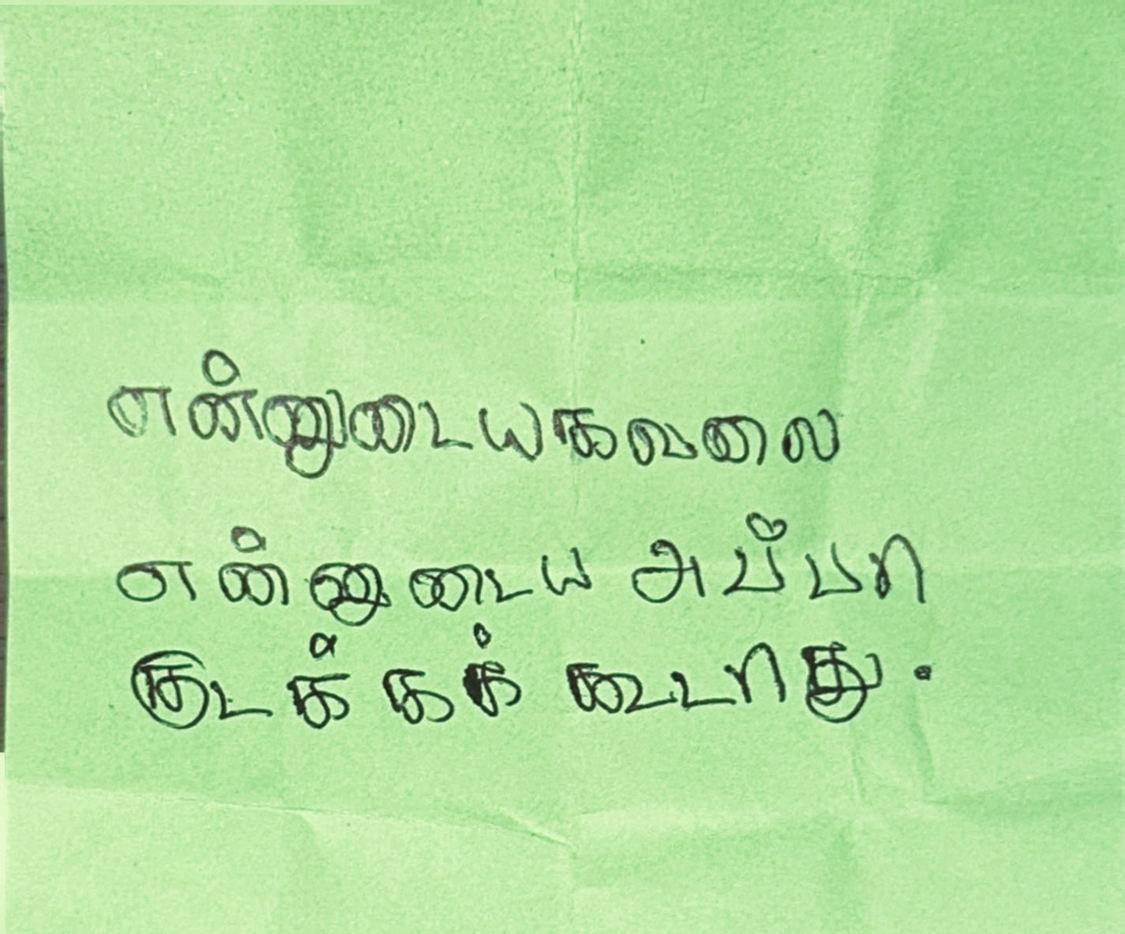 என்னுடையகவலை
என்னுடைய அப்பா
குடக்கக் கூடாது.